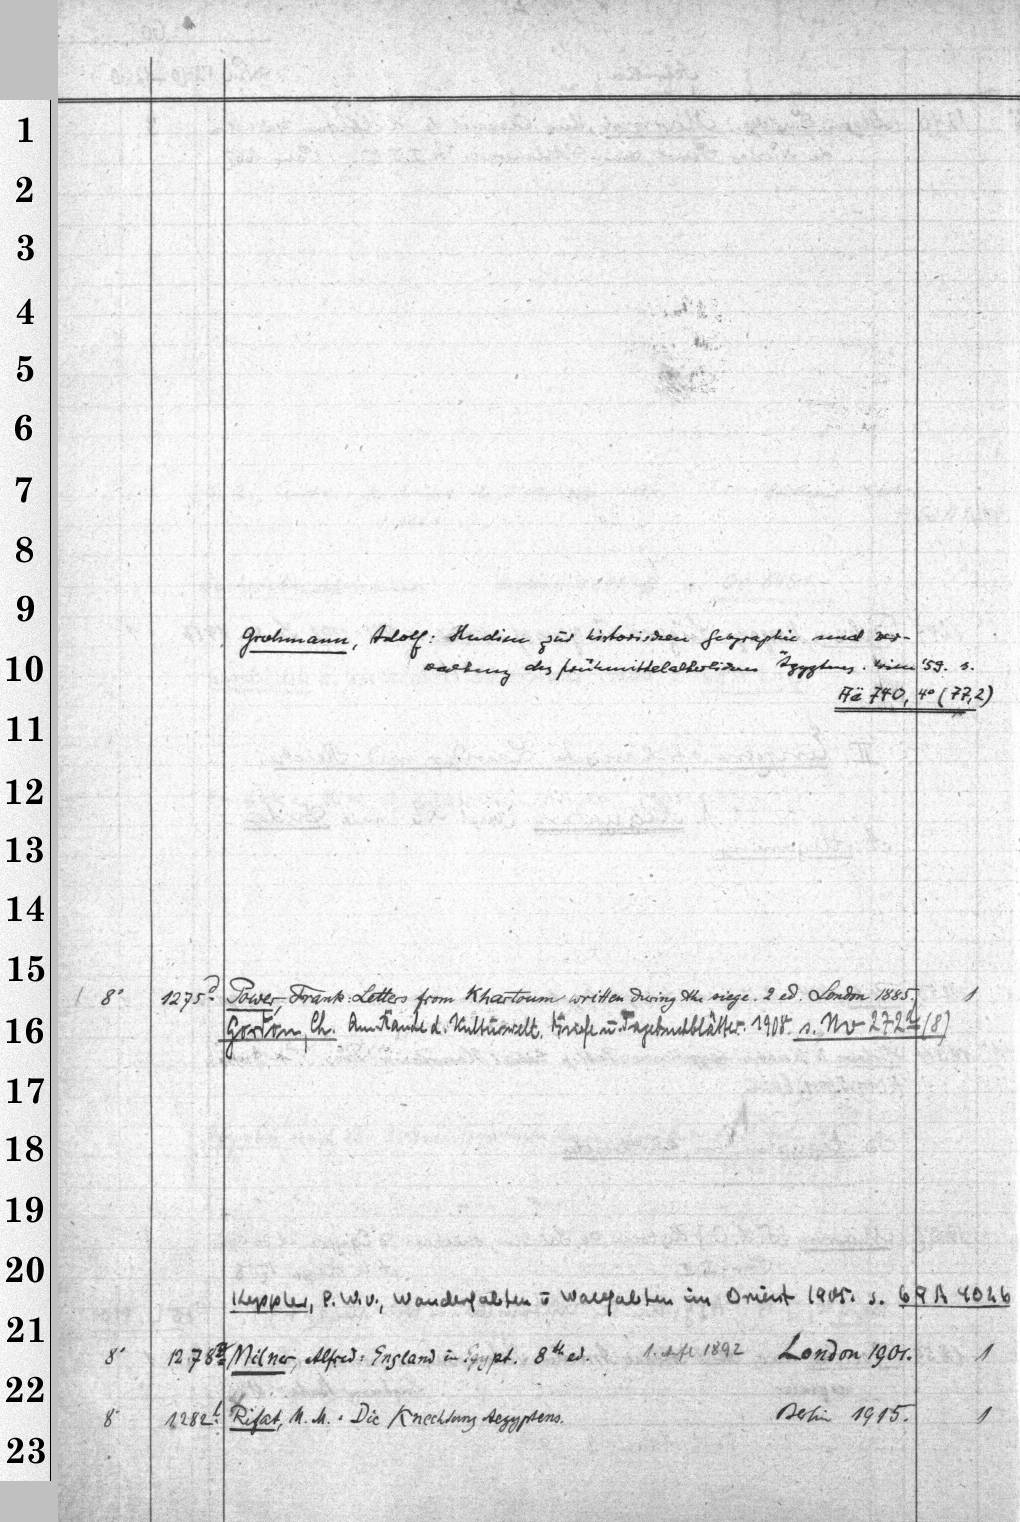 1
2
3
4
5
6
7
8
9
Grohmann, Adolf: Studien zur historischen Geographie und Ver-
10
waltung des frühmittelalterlichen Ägyptens. Wien '59. s.
Ää 740, 4° (77,2)
11
12
13
14
15
8° 1275d Power, Frank: Letters from Khartoum written during the siege. 2 ed. London 1885. 1
16
Gordon, Ch. Am Rande d. Kulturwelt. Briefe u. Tagebuchblätter. 1908. s. Nv 272 (8)
17
18
19
20
Keppler, P. W. v., Wanderfahrten u Wallfahrten im Orient 1905. s. 69 A 4026
21
8° 1278 Milner, Alfred: England in Egypt. 8th ed. 1. Aufl 1892 London 1901. 1
22
8° 1282 Rifat, M. M.: Die Knechtung Aegyptens. Berlin 1915. 1
23